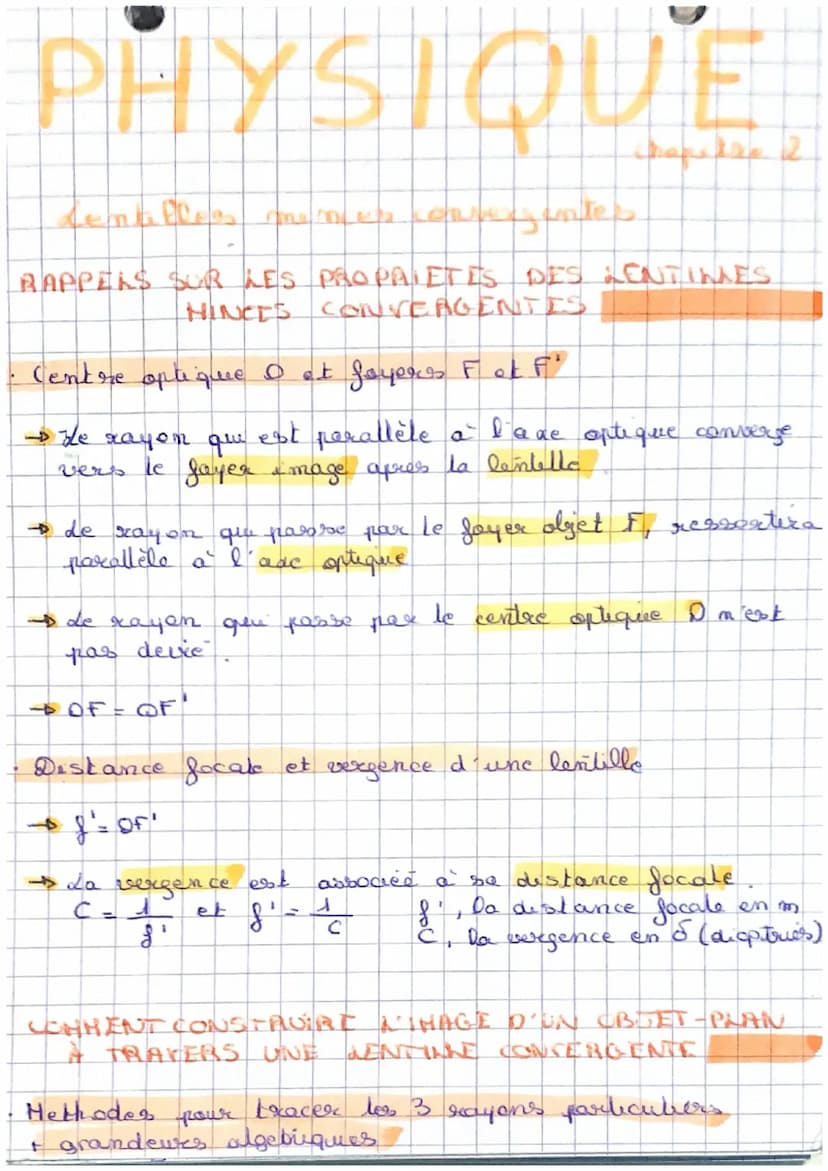 PHYSIQUE
chapitre 2
Lentilles minces convergentes
RAPPELS SUR LES PROPRIETES DES LENTILLES
MINCES CONVERGENTES
. Centre optique O et foyers F et F'
→ Le rayon qui est parallèle à l'axe optique converge
vers le foyer image, apres la lentille
→ Le rayon qui passe par le foyer objet F, ressortira
parallèle à l'axe optique
→ Le rayon qui passe par le centre optique O n'est
pas dévié.
→ OF = OF'
. Distance focale et vergence d'une lentille
→ f' = OF'
→ La vergence est associée à sa distance focale.
C = 1/f' et f' = 1/C f', la distance focale en m
C, la vergence en δ (dioptries)
COMMENT CONSTRUIRE L'IMAGE D'UN OBJET-PLAN
À TRAVERS UNE LENTILLE CONVERGENTE
. Methodes pour tracer les 3 rayons particuliers
+ grandeurs algébriques